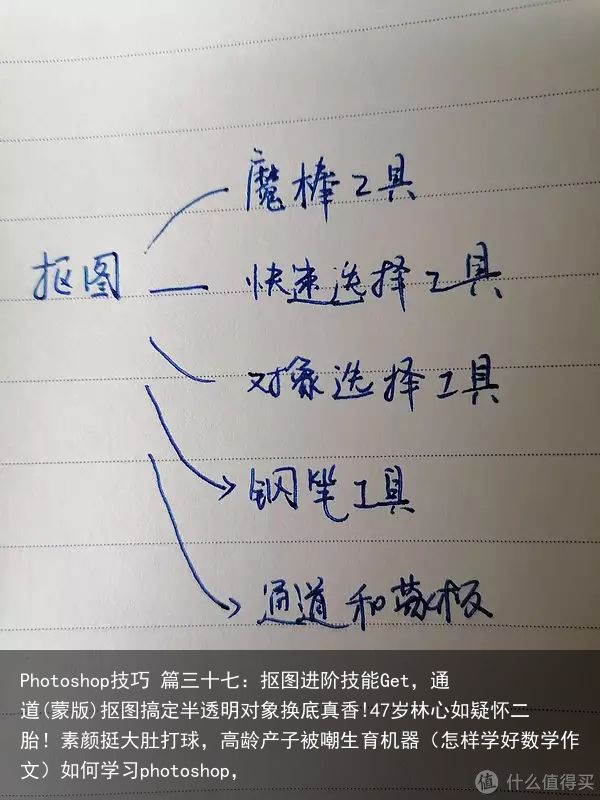 魔棒工具
抠图
快速选择工具
对象选择工具
钢笔工具
通道和蒙板
Photoshop技巧 篇三十七：抠图进阶技能Get，通
道(蒙版)抠图搞定半透明对象换底真香!47岁林心如疑怀二
胎！素颜挺大肚打球，高龄产子被嘲生育机器（怎样学好数学作
文）如何学习photoshop，
值 什么值得买